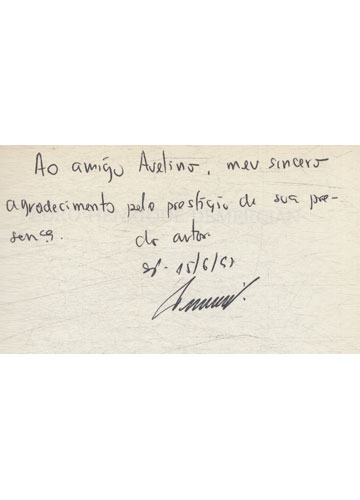 Ao amigo Avelino, meu sincero
agradecimento pelo prestígio de sua pre-
sença. do autor.
SP. 15/6/